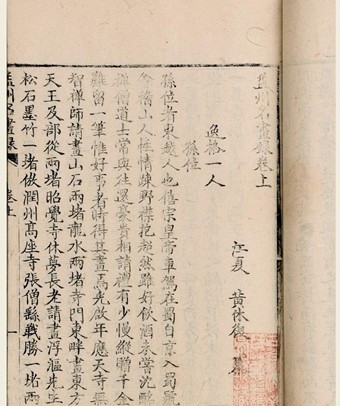 益州名畫錄卷上
江夏 黃休復 纂
逸格一人
孫位
孫位者東越人也僖宗皇帝車駕在蜀自京入蜀號
會稽山人性情疎野襟抱超然雖好飲酒未嘗沈酩
禪僧道士常與往還豪貴相請禮有少慢縱贈千金
難留一筆惟好事者時得其畫焉光啟年應天寺無
智禪師請畫山石兩堵龍水兩堵寺門東畔畫東方
天王及部從兩堵昭覺寺休夢長老請畫浮漚先生
松石墨竹一堵倣潤州高座寺張僧繇戰勝一堵兩
益州名畫錄 卷上 一